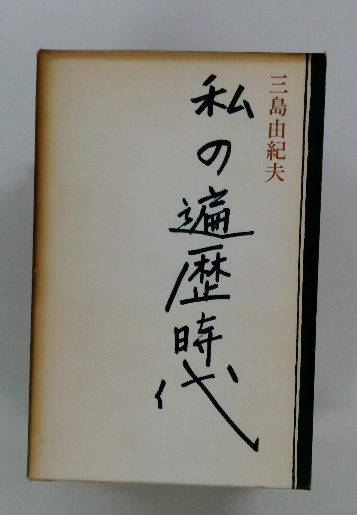 三島由紀夫
私の遍歴時代